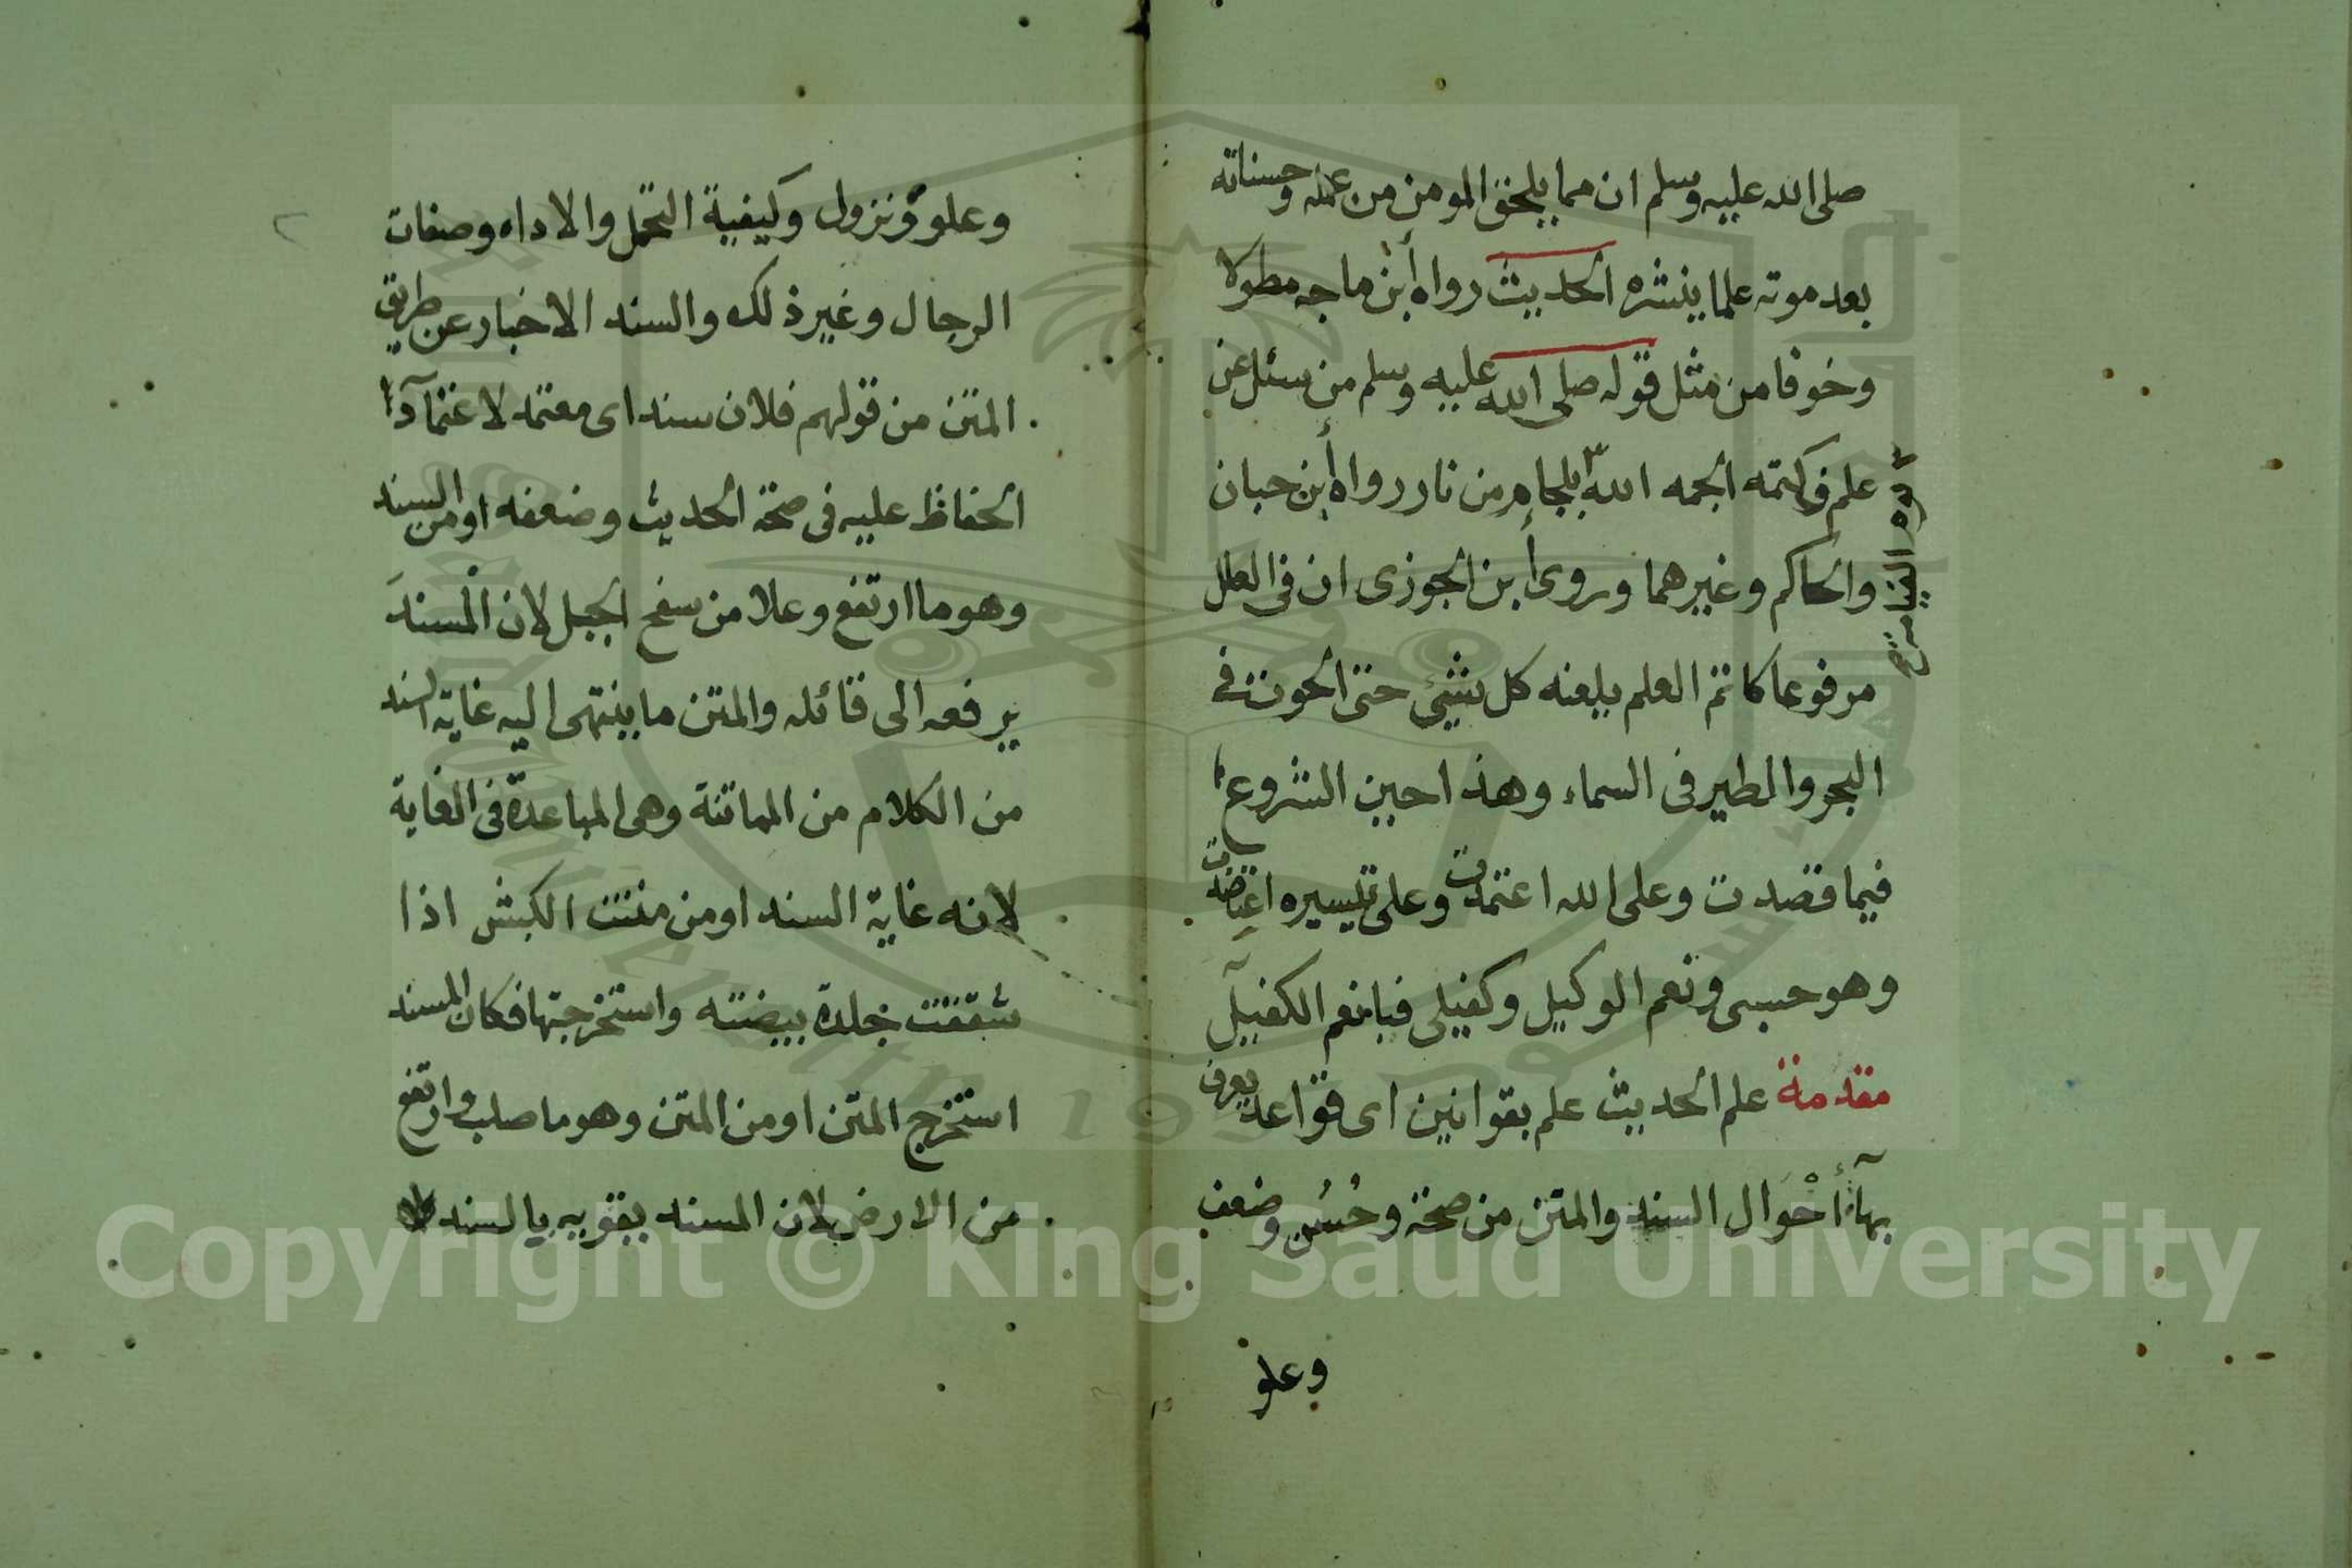 صلى الله عليه وسلم ان مما يلحق المومن من عمله وحسناته
بعد موته علما ينشره الحديث رواه أبن ماجه مطولا
وخوفا من مثل قوله صلى الله عليه وسلم من سئل عن
علم فكتمه ألجمه الله بلجام من نار رواه أبن حبان
يوم القيامة صح
والحاكم وغيرهما وروى أبن الجوزى ان فى العلل
مرفوعا كاتم العلم يلعنه كل شيئ حتى الحوت في
البحر والطير فى السماء وهذا حين الشروع
فيما قصدت وعلى الله اعتمدت وعلى تيسيره اعتضدت
وهو حسبى ونعم الوكيل وكفيلى فيا نعم الكفيل
مقدمة علم الحديث علم بقوانين اى قواعد يعرف
بها أحْوال السند والمتن من صحة وحُسُن وضعف
وعلو
وعلو ونزول وكيفية التحمل والاداء وصفات
الرجال وغير ذلك والسند الاخبار عن طريق
المتن من قولهم فلان سند اى معتمد لاعتماد
الحفاظ عليه فى صحة الحديث وضعفه او من السند
وهو ما ارتفع وعلا من سفح الجبل لان المْسندَ
يرفعه الى قائله والمتن ما ينتهى اليه غاية السند
من الكلام من المماتنة وهى المباعدة فى الغاية
لانه غاية السند او من متنت الكبش اذا
شققت جلدة بيضته واستخرجتها فكان المسند
استخرج المتن او من المتن وهو ما صلب وارتفع
من الارض لان المسند يقويه بالسند
Copyright © King Saud University